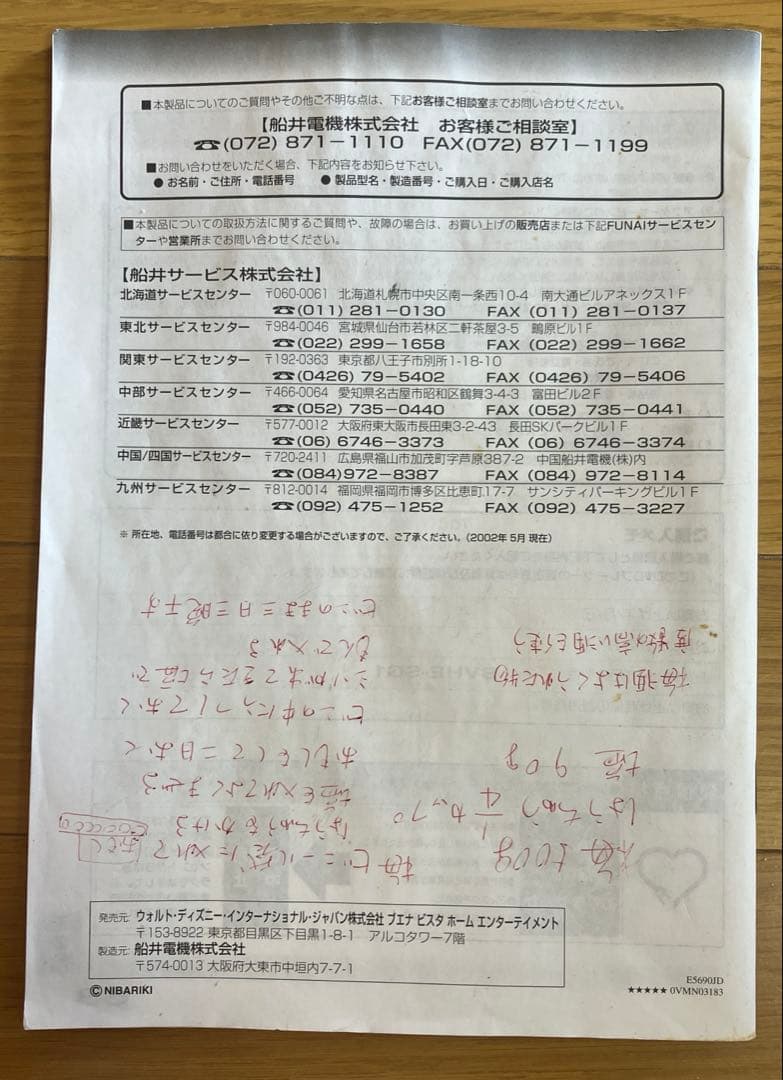 ■本製品についてのご質問やその他ご不明な点は、下記お客様ご相談室までお問い合わせください。
【船井電機株式会社　お客様ご相談室】
☎(072) 871－1110　FAX(072) 871－1199
■お問い合わせをいただく場合、下記内容をお知らせ下さい。
● お名前・ご住所・電話番号　● 製品型名・製造番号・ご購入日・ご購入店名
■本製品についての取扱方法に関するご質問や、故障の場合は、お買い上げの販売店または下記FUNAIサービスセン
ターや営業所までお問い合わせください。
【船井サービス株式会社】
北海道サービスセンター　〒060-0061　北海道札幌市中央区南一条西10-4　南大通ビルアネックス1F
☎(011) 281－0130　FAX (011) 281－0137
東北サービスセンター　〒984-0046　宮城県仙台市若林区二軒茶屋3-5　鵙原ビル1F
☎(022) 299－1658　FAX (022) 299－1662
関東サービスセンター　〒192-0363　東京都八王子市別所1-18-10
☎(0426) 79－5402　FAX (0426) 79－5406
中部サービスセンター　〒466-0064　愛知県名古屋市昭和区鶴舞3-4-3　富田ビル2F
☎(052) 735－0440　FAX (052) 735－0441
近畿サービスセンター　〒577-0012　大阪府東大阪市長田東3-2-43　長田SKパークビル1F
☎(06) 6746－3373　FAX (06) 6746－3374
中国/四国サービスセンター　〒720-2411　広島県福山市加茂町字芦原387-2　中国船井電機(株)内
☎(084)972－8387　FAX (084) 972－8114
九州サービスセンター　〒812-0014　福岡県福岡市博多区比恵町17-7　サンシティパーキングビル1F
☎(092) 475－1252　FAX (092) 475－3227
※ 所在地、電話番号は都合に依り変更する場合がございますので、ご了承ください。(2002年 5月 現在)
梅 500g
しょうちゅう 1/4 カップ
塩 90g
梅酒はよくうれた物
度数の高い酒を使う
梅ビニール袋に入れて
しょうちゅうをかける
塩を入れてよくまぜる
おもしをして二日おく
ビンの中にうつしておく
シソが出てきたら塩で
もんで入れる
ビンのまま三日三晩干す
発売元: ウォルト・ディズニー・インターナショナル・ジャパン株式会社 ブエナ ビスタ ホーム エンターテイメント
〒153-8922 東京都目黒区下目黒1-8-1　アルコタワー7階
製造元: 船井電機株式会社
〒574-0013 大阪府大東市中垣内7-7-1
©NIBARIKI
E5690JD
★★★★★ 0VMN03183